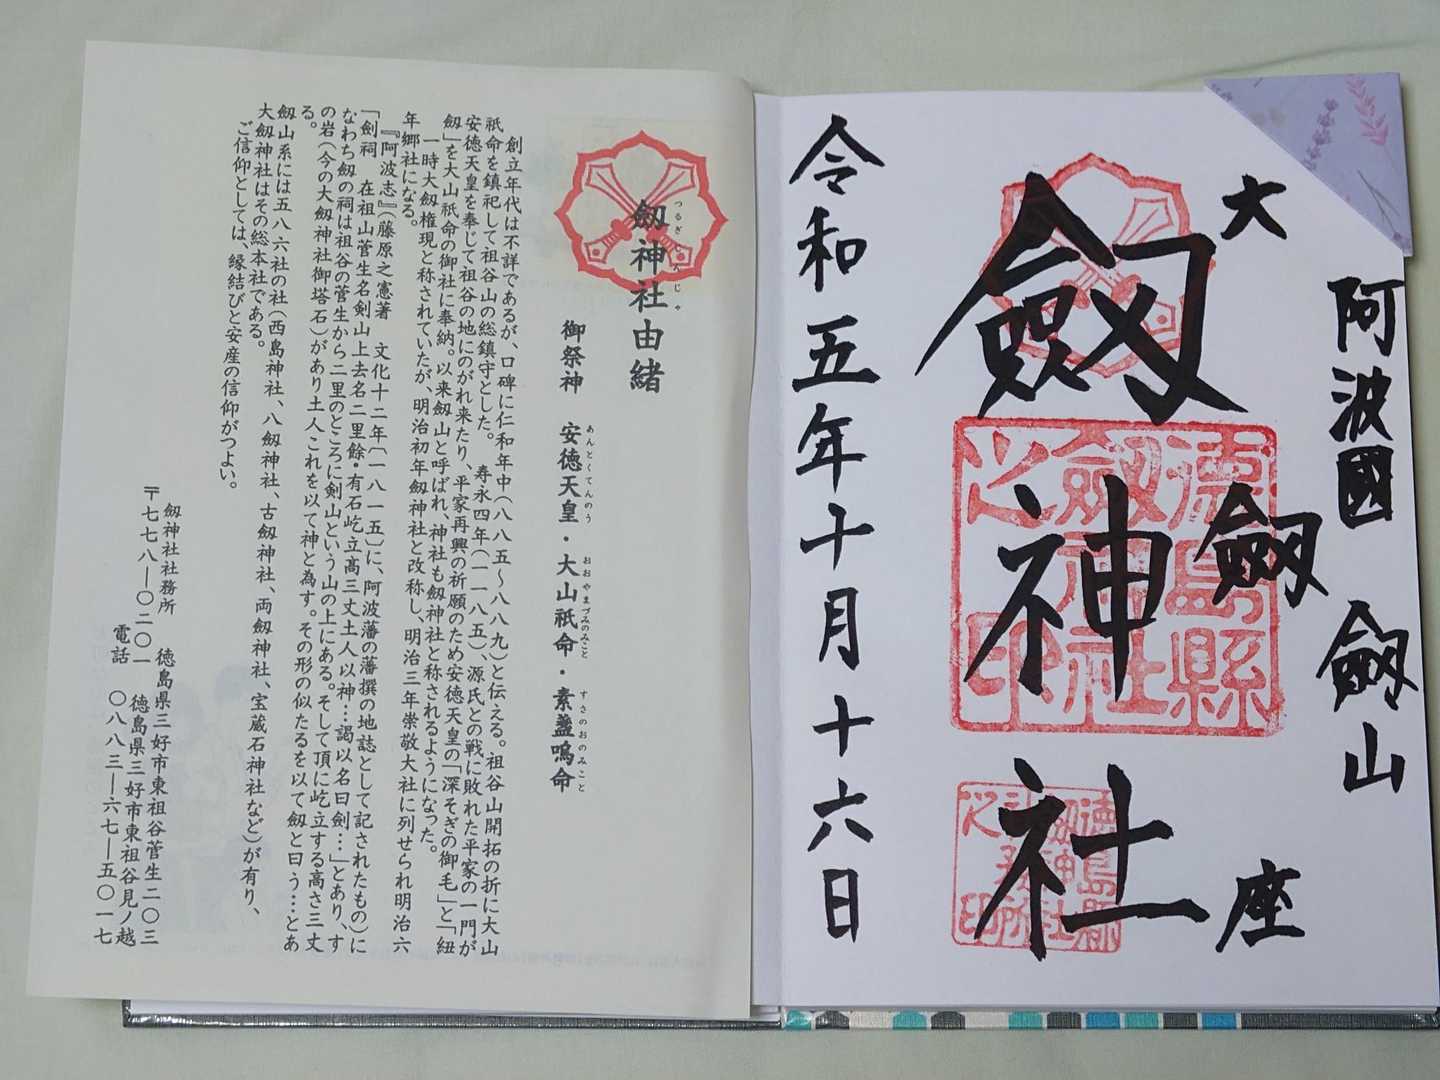 阿波國 劔山
大 劔 座
劔神社
令和五年十月十六日
徳島縣
劔神社
之印
徳島縣
劔神社
社務所
之印
つるぎじんじゃ
劔神社由緒
御祭神 安徳天皇・大山祇命・素盞嗚命
あんとくてんのう おおやまづみのみこと すさのおのみこと
創立年代は不詳であるが、口碑に仁和年中（八八五〜八八九）と伝える。祖谷山開拓の折に大山
祇命を鎮祀して祖谷山の総鎮守とした。 寿永四年（一一八五）、源氏との戦に敗れた平家の一門が
安徳天皇を奉じて祖谷の地にのがれ来たり、平家再興の祈願のため安徳天皇の「深そぎの御毛」と「紐
劔」を大山祇命の御社に奉納。以来劔山と呼ばれ、神社も劔神社と称されるようになった。
一時大劔権現と称されていたが、明治初年劔神社と改称し、明治三年崇敬大社に列せられ明治六
年郷社になる。
『阿波志』（藤原之憲著 文化十二年〔一八一五〕に、阿波藩の藩撰の地誌として記されたもの）に
「劍祠 在祖山菅生名剣山上去名二里餘・有石屹立高三丈土人以神…謁以名曰劍…」とあり、す
なわち劔の祠は祖谷の菅生から二里のところに剣山という山の上にある。そして頂に屹立する高さ三丈
の岩（今の大劔神社御塔石）があり土人これを以て神と為す。その形の似たるを以て劔と曰う…とあ
る。
劔山系には五八六社の社（西島神社、八劔神社、古劔神社、両劔神社、宝蔵石神社など）が有り、
大劔神社はその総本社である。
ご信仰としては、縁結びと安産の信仰がつよい。
劔神社社務所 徳島県三好市東祖谷菅生二〇三
〒七七八―〇二〇一 徳島県三好市東祖谷見ノ越
電話 〇八八三―六七―五〇一七